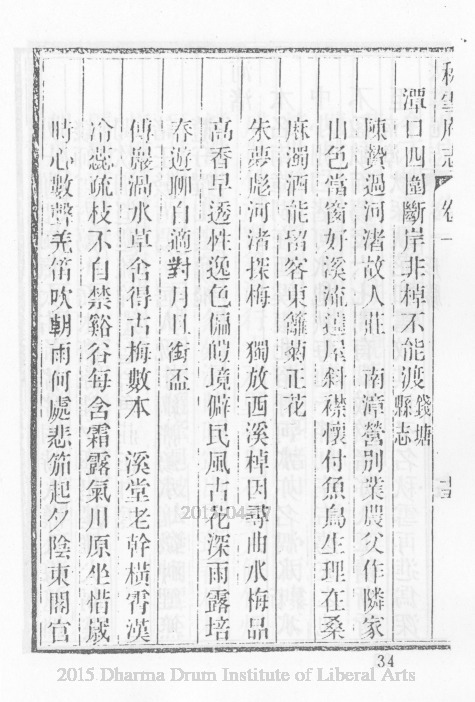 秋雪庵志 卷一
潭口四圍斷岸非棹不能渡 錢塘縣志
陳贄過河渚故人莊 南漳營別業農父作隣家
山色當窗好溪流遶屋斜襟懷付魚鳥生理在桑
麻濁酒能留客東籬菊正花
朱夢彪河渚探梅 獨放西溪棹因尋曲水梅品
高香早透性逸色偏皚境僻民風古花深雨露培
春遊聊自適對月且銜盃
傅巖渦水草舍得古梅數本 溪堂老幹橫霄漢
冷蕊疏枝不自禁谿谷每含霜露氣川原坐惜歲
時心數聲羌笛吹朝雨何處悲笳起夕陰東閣官
34
2015 Dharma Drum Institute of Liberal Arts